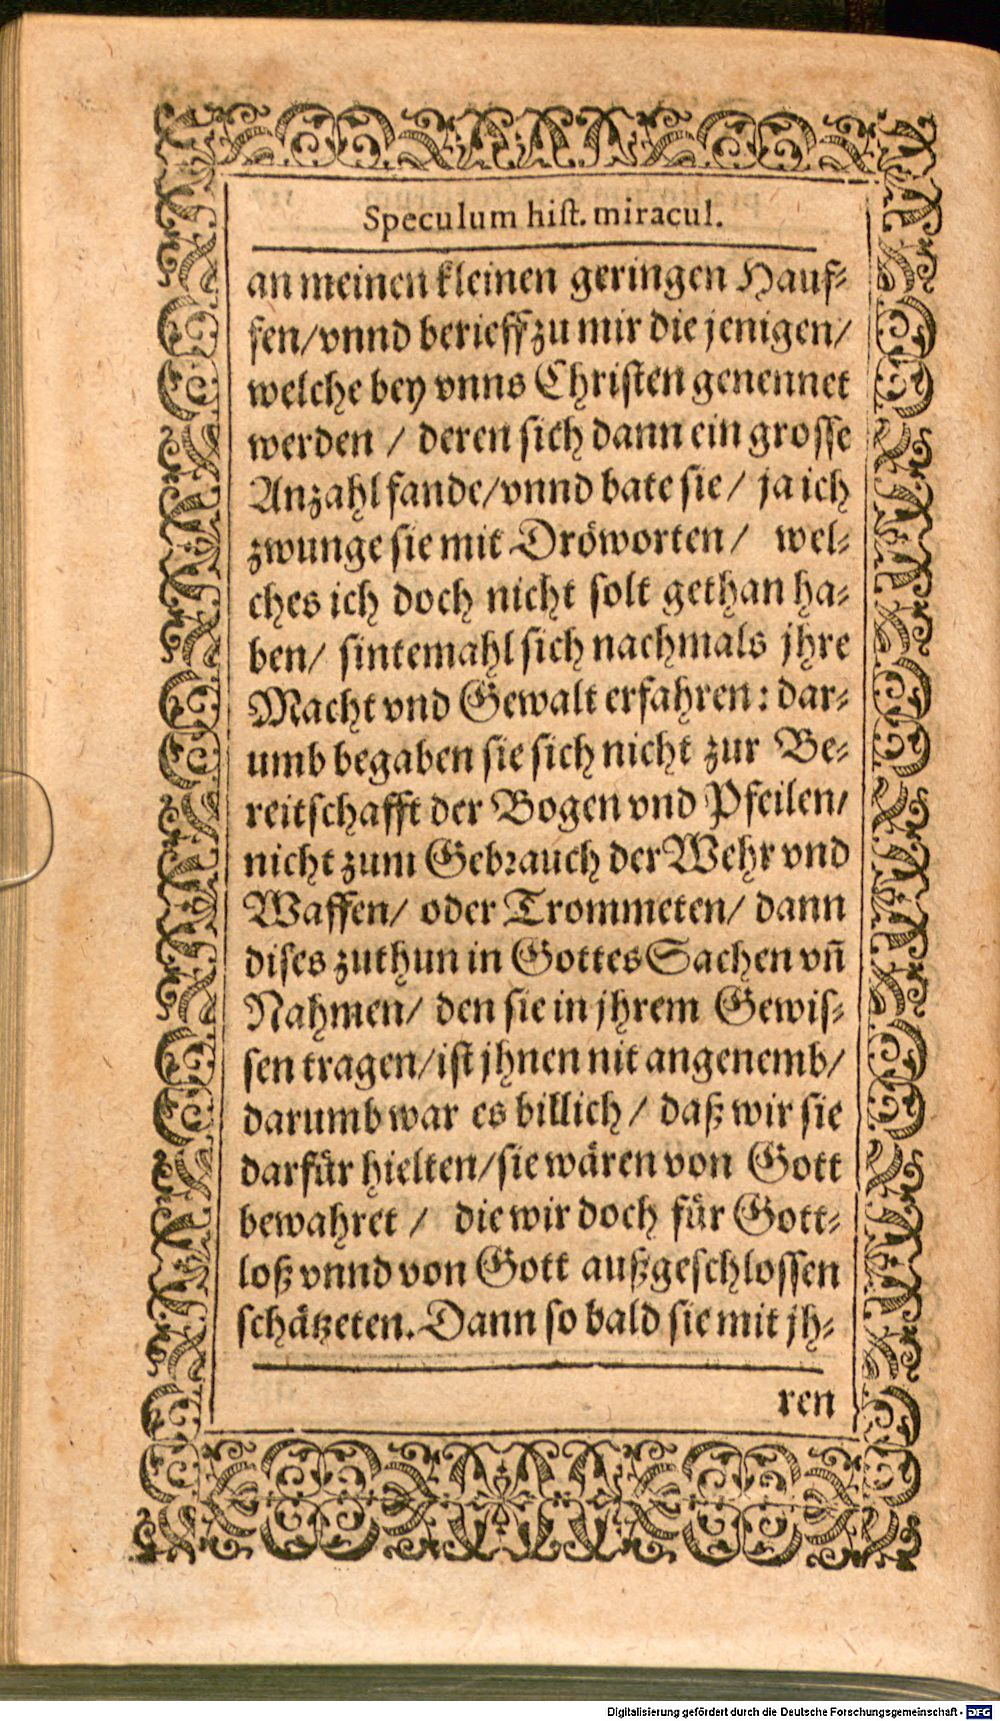 Speculum hist. miracul.
an meinen kleinen geringen Hauf-
fen/vnnd berieff zu mir die jenigen/
welche bey vnns Christen genennet
werden / deren sich dann ein grosse
Anzahl fande/vnnd bate sie / ja ich
zwunge sie mit Dröworten / wel-
ches ich doch nicht solt gethan ha-
ben/ sintemahl sich nachmals jhre
Macht vnd Gewalt erfahren: dar-
umb begaben sie sich nicht zur Be-
reitschafft der Bogen vnd Pfeilen/
nicht zum Gebrauch der Wehr vnd
Waffen/ oder Trommeten/ dann
dises zuthun in Gottes Sachen vn̄
Nahmen/ den sie in jhrem Gewis-
sen tragen/ist jhnen nit angenemb/
darumb war es billich / daß wir sie
darfür hielten/sie wären von Gott
bewahret / die wir doch für Gott-
loß vnnd von Gott außgeschlossen
schätzeten. Dann so bald sie mit jh-
ren
Digitalisierung gefördert durch die Deutsche Forschungsgemeinschaft - DFG